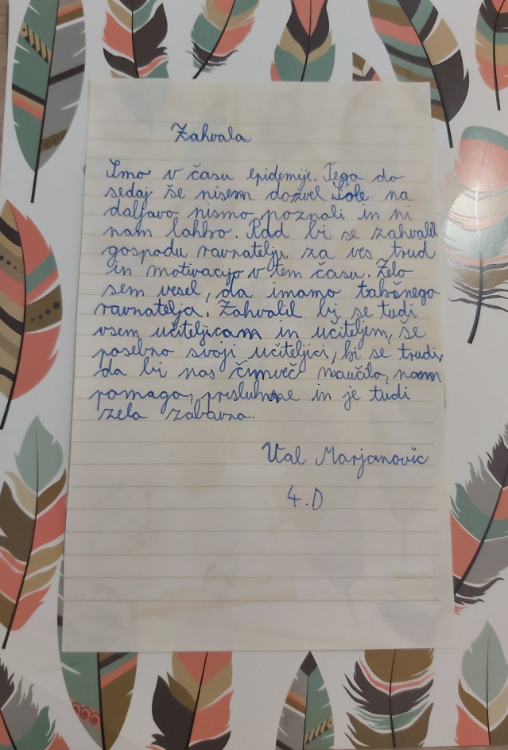 Zahvala
Smo v času epidemije. Tega do
sedaj še nisem doživel. Šole na
daljavo nismo poznali in ni
nam lahko. Rad bi se zahvalil
gospodu ravnatelju za ves trud
in motivacijo v tem času. Zelo
sem vesel, da imamo takšnega
ravnatelja. Zahvalil bi se tudi
vsem učiteljicam in učiteljem, še
posebno svoji učiteljici, ki se trudi,
da bi nas čimveč naučila, nam
pomaga, prisluhne in je tudi
zelo zabavna.
Val Marjanovič
4.D